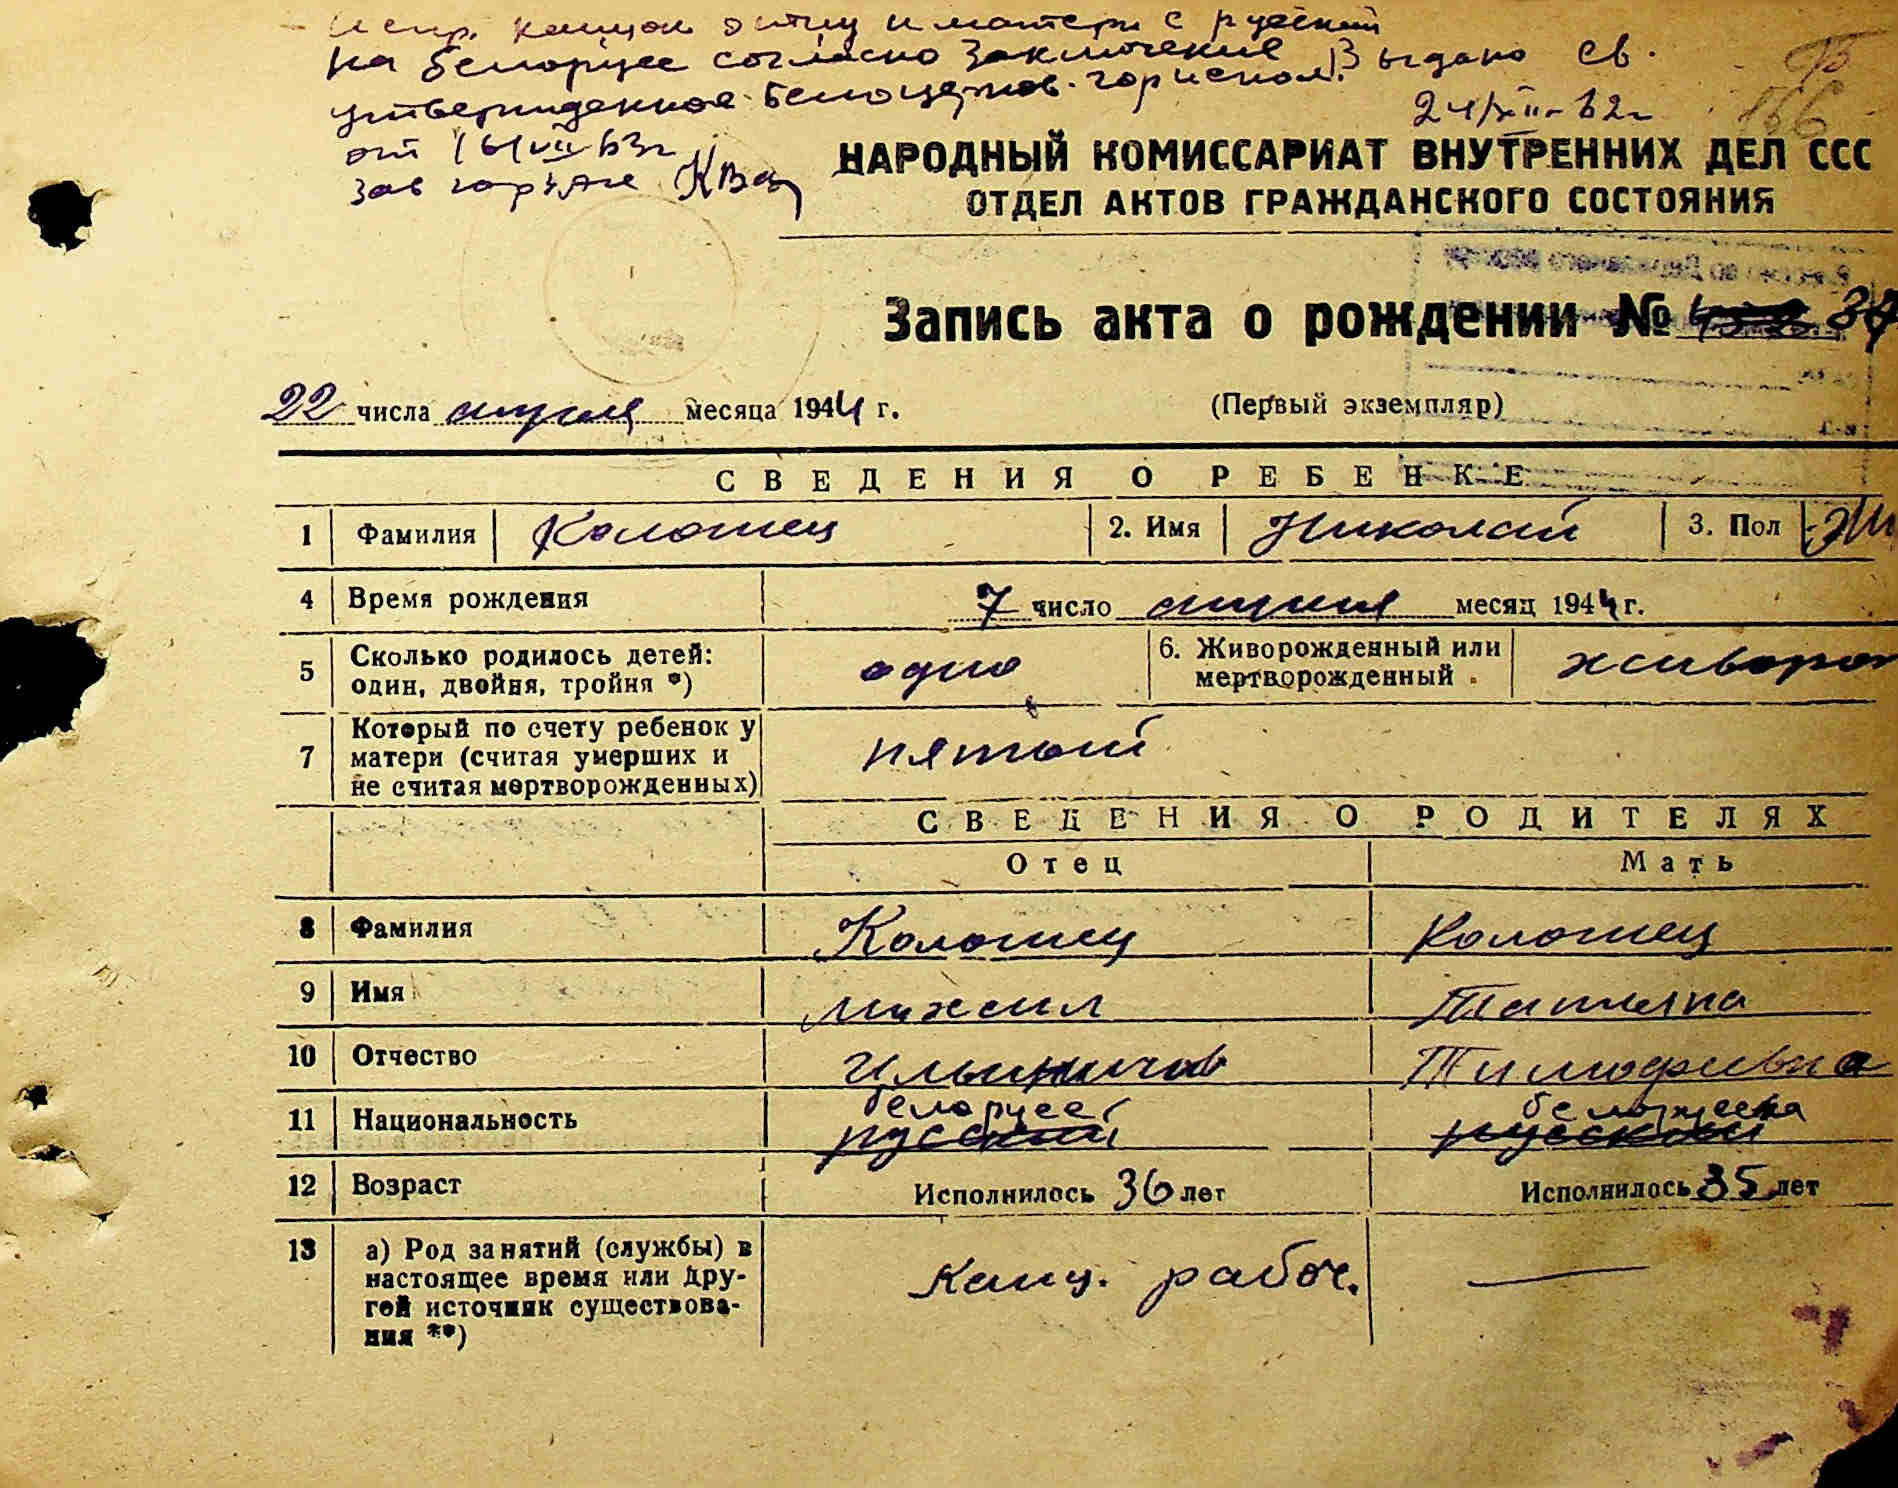 Испр. национ. отцу и матери с русский
на белорусс согласно заключения
утвержденное Белоцерков. горисполк.
от 16/VII-63г
Зав горЗАГС
Выдано св.
24/XII-62г
166
НАРОДНЫЙ КОМИССАРИАТ ВНУТРЕННИХ ДЕЛ ССС
ОТДЕЛ АКТОВ ГРАЖДАНСКОГО СОСТОЯНИЯ
Запись акта о рождении №
22 числа апреля месяца 1944 г. (Первый экземпляр)
СВЕДЕНИЯ О РЕБЕНКЕ
1 Фамилия Коломиец 2. Имя Николай 3. Пол
4 Время рождения 7 число апреля месяц 1944 г.
5 Сколько родилось детей: один, двойня, тройня *) одно 6. Живорожденный или мертворожденный живорож
7 Который по счету ребенок у матери (считая умерших и не считая мертворожденных) пятый
СВЕДЕНИЯ О РОДИТЕЛЯХ
Отец Мать
8 Фамилия Коломиец Коломиец
9 Имя Михаил Татьяна
10 Отчество Ильичов Тимофеевна
11 Национальность белорусс русский белорусска русская
12 Возраст Исполнилось 36 лет Исполнилось 35 лет
13 а) Род занятий (службы) в настоящее время или другой источник существования **) Канц. рабоч. —